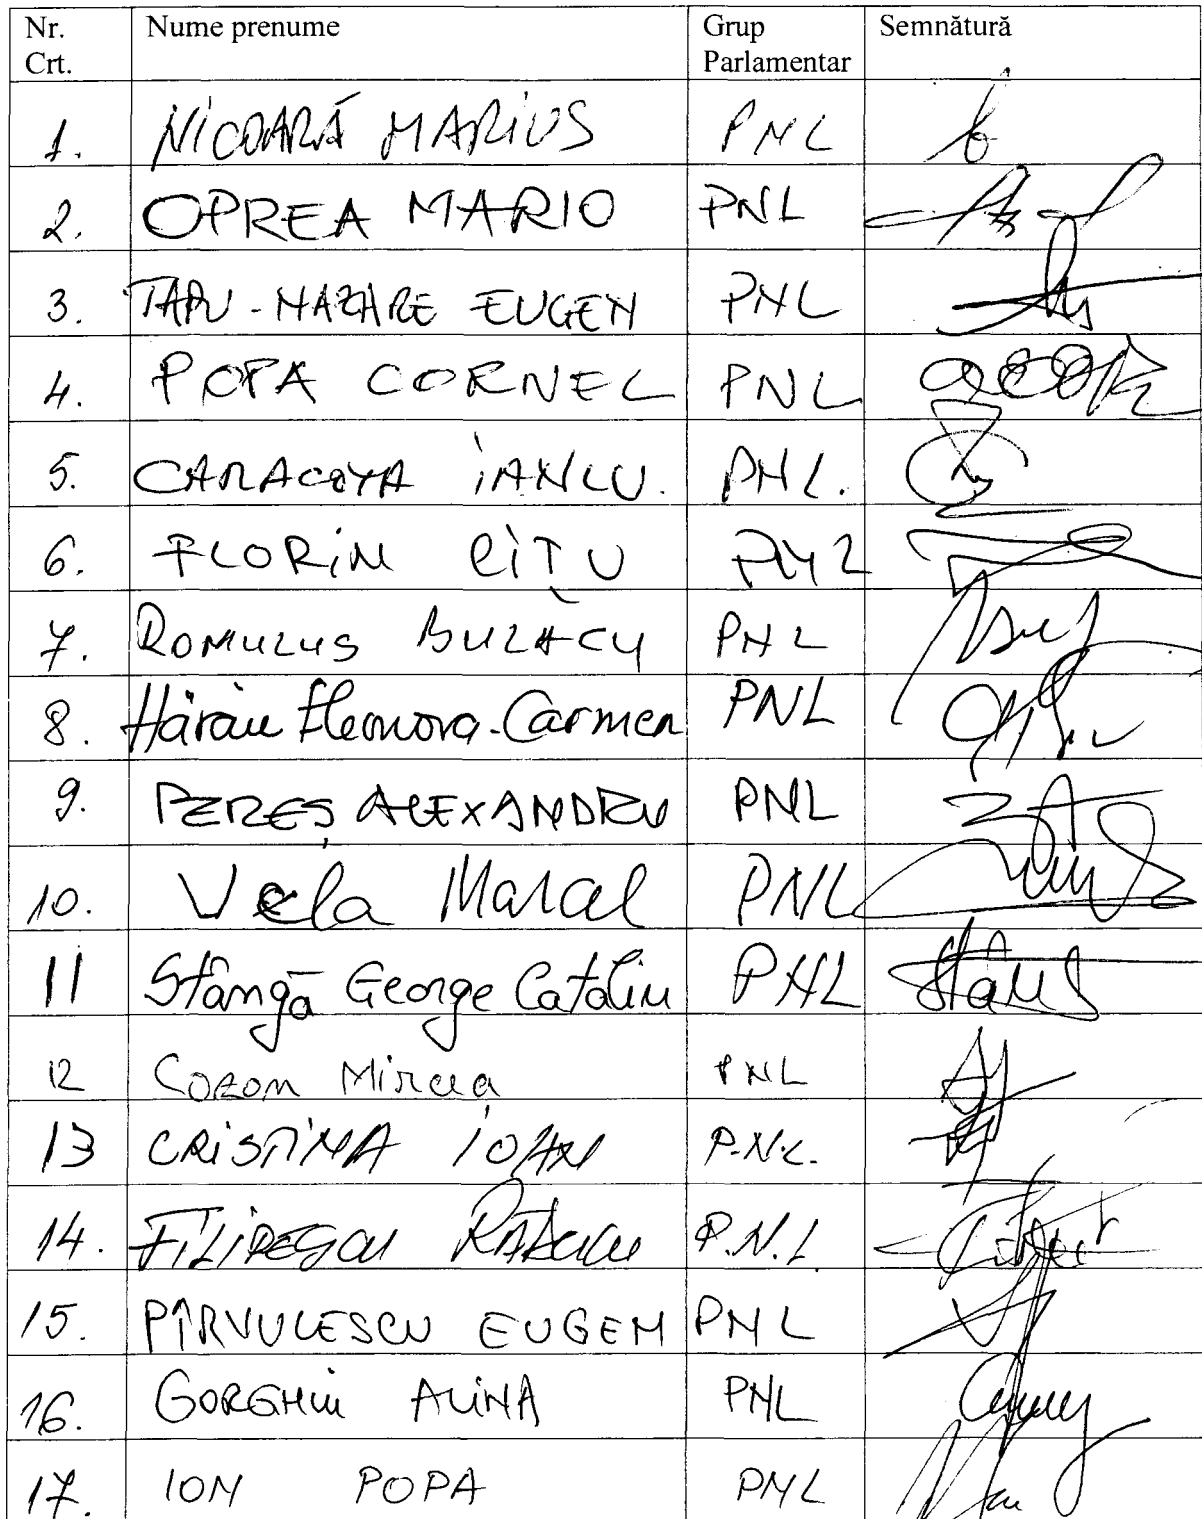 Nr. Crt. Nume prenume Grup Parlamentar Semnătură
1. NICOARĂ MARIUS PNL
2. OPREA MARIO PNL
3. TAPU-NAZARE EUGEN PNL
4. POPA CORNEL PNL
5. CARACOTA IANCU. PNL.
6. FLORIN CÎȚU PNL
7. ROMULUS BULACU PNL
8. Hărău Eleonora-Carmen PNL
9. PEREȘ ALEXANDRU PNL
10. Vela Marcel PNL
11 Stângă George Catalin PNL
12 Cozan Mircea PNL
13 CRISTINA IOAN P.N.L.
14. FILIPESCU RĂDUCU P.N.L
15. PÎRVULESCU EUGEN PNL
16. GORGHIU ALINA PNL
17. ION POPA PNL